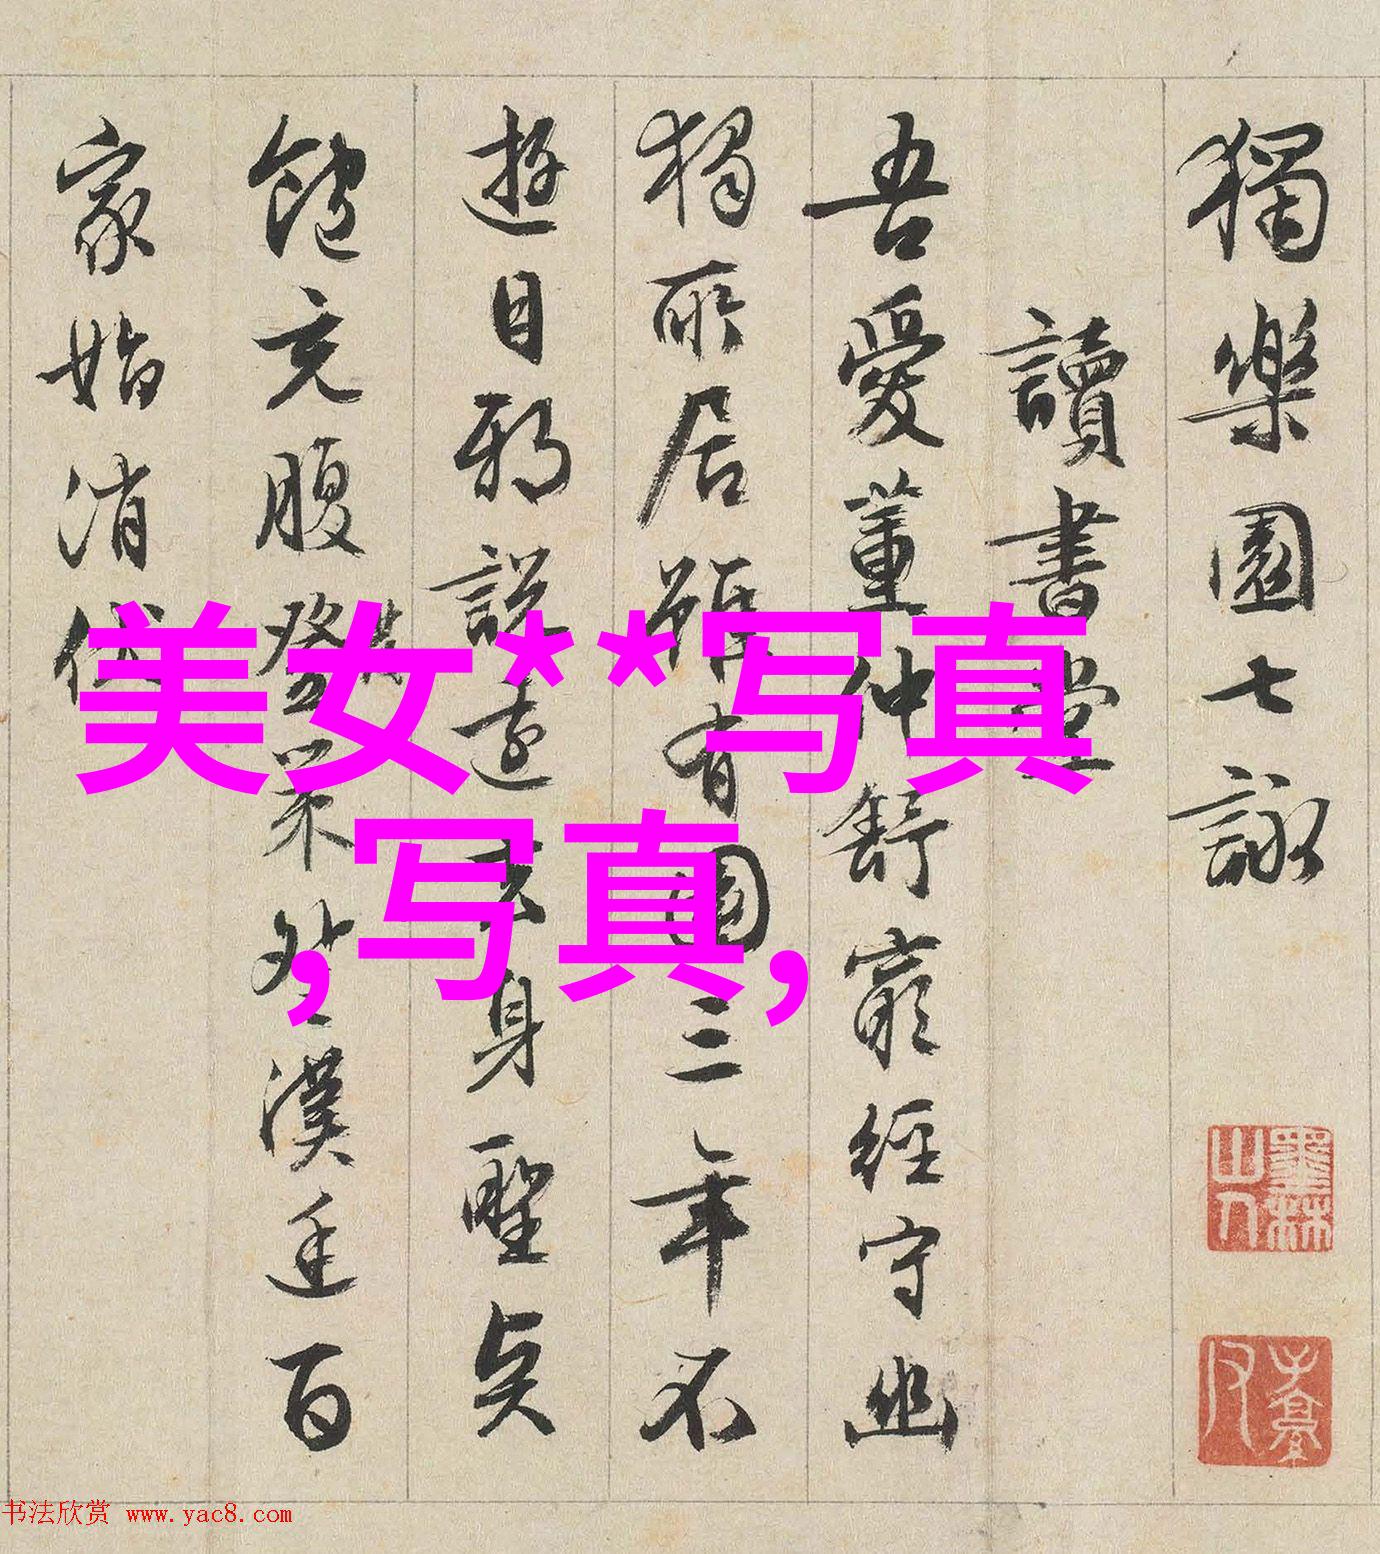 獨樂園七詠
讀書堂
吾愛董仲舒窮經守幽
獨所居雖有園三年不
遊目邪說遠去身聖言
飽充腹發策登漢廷百
家始消伏
美女**写真
,写真,
书法欣赏 www.yac8.com